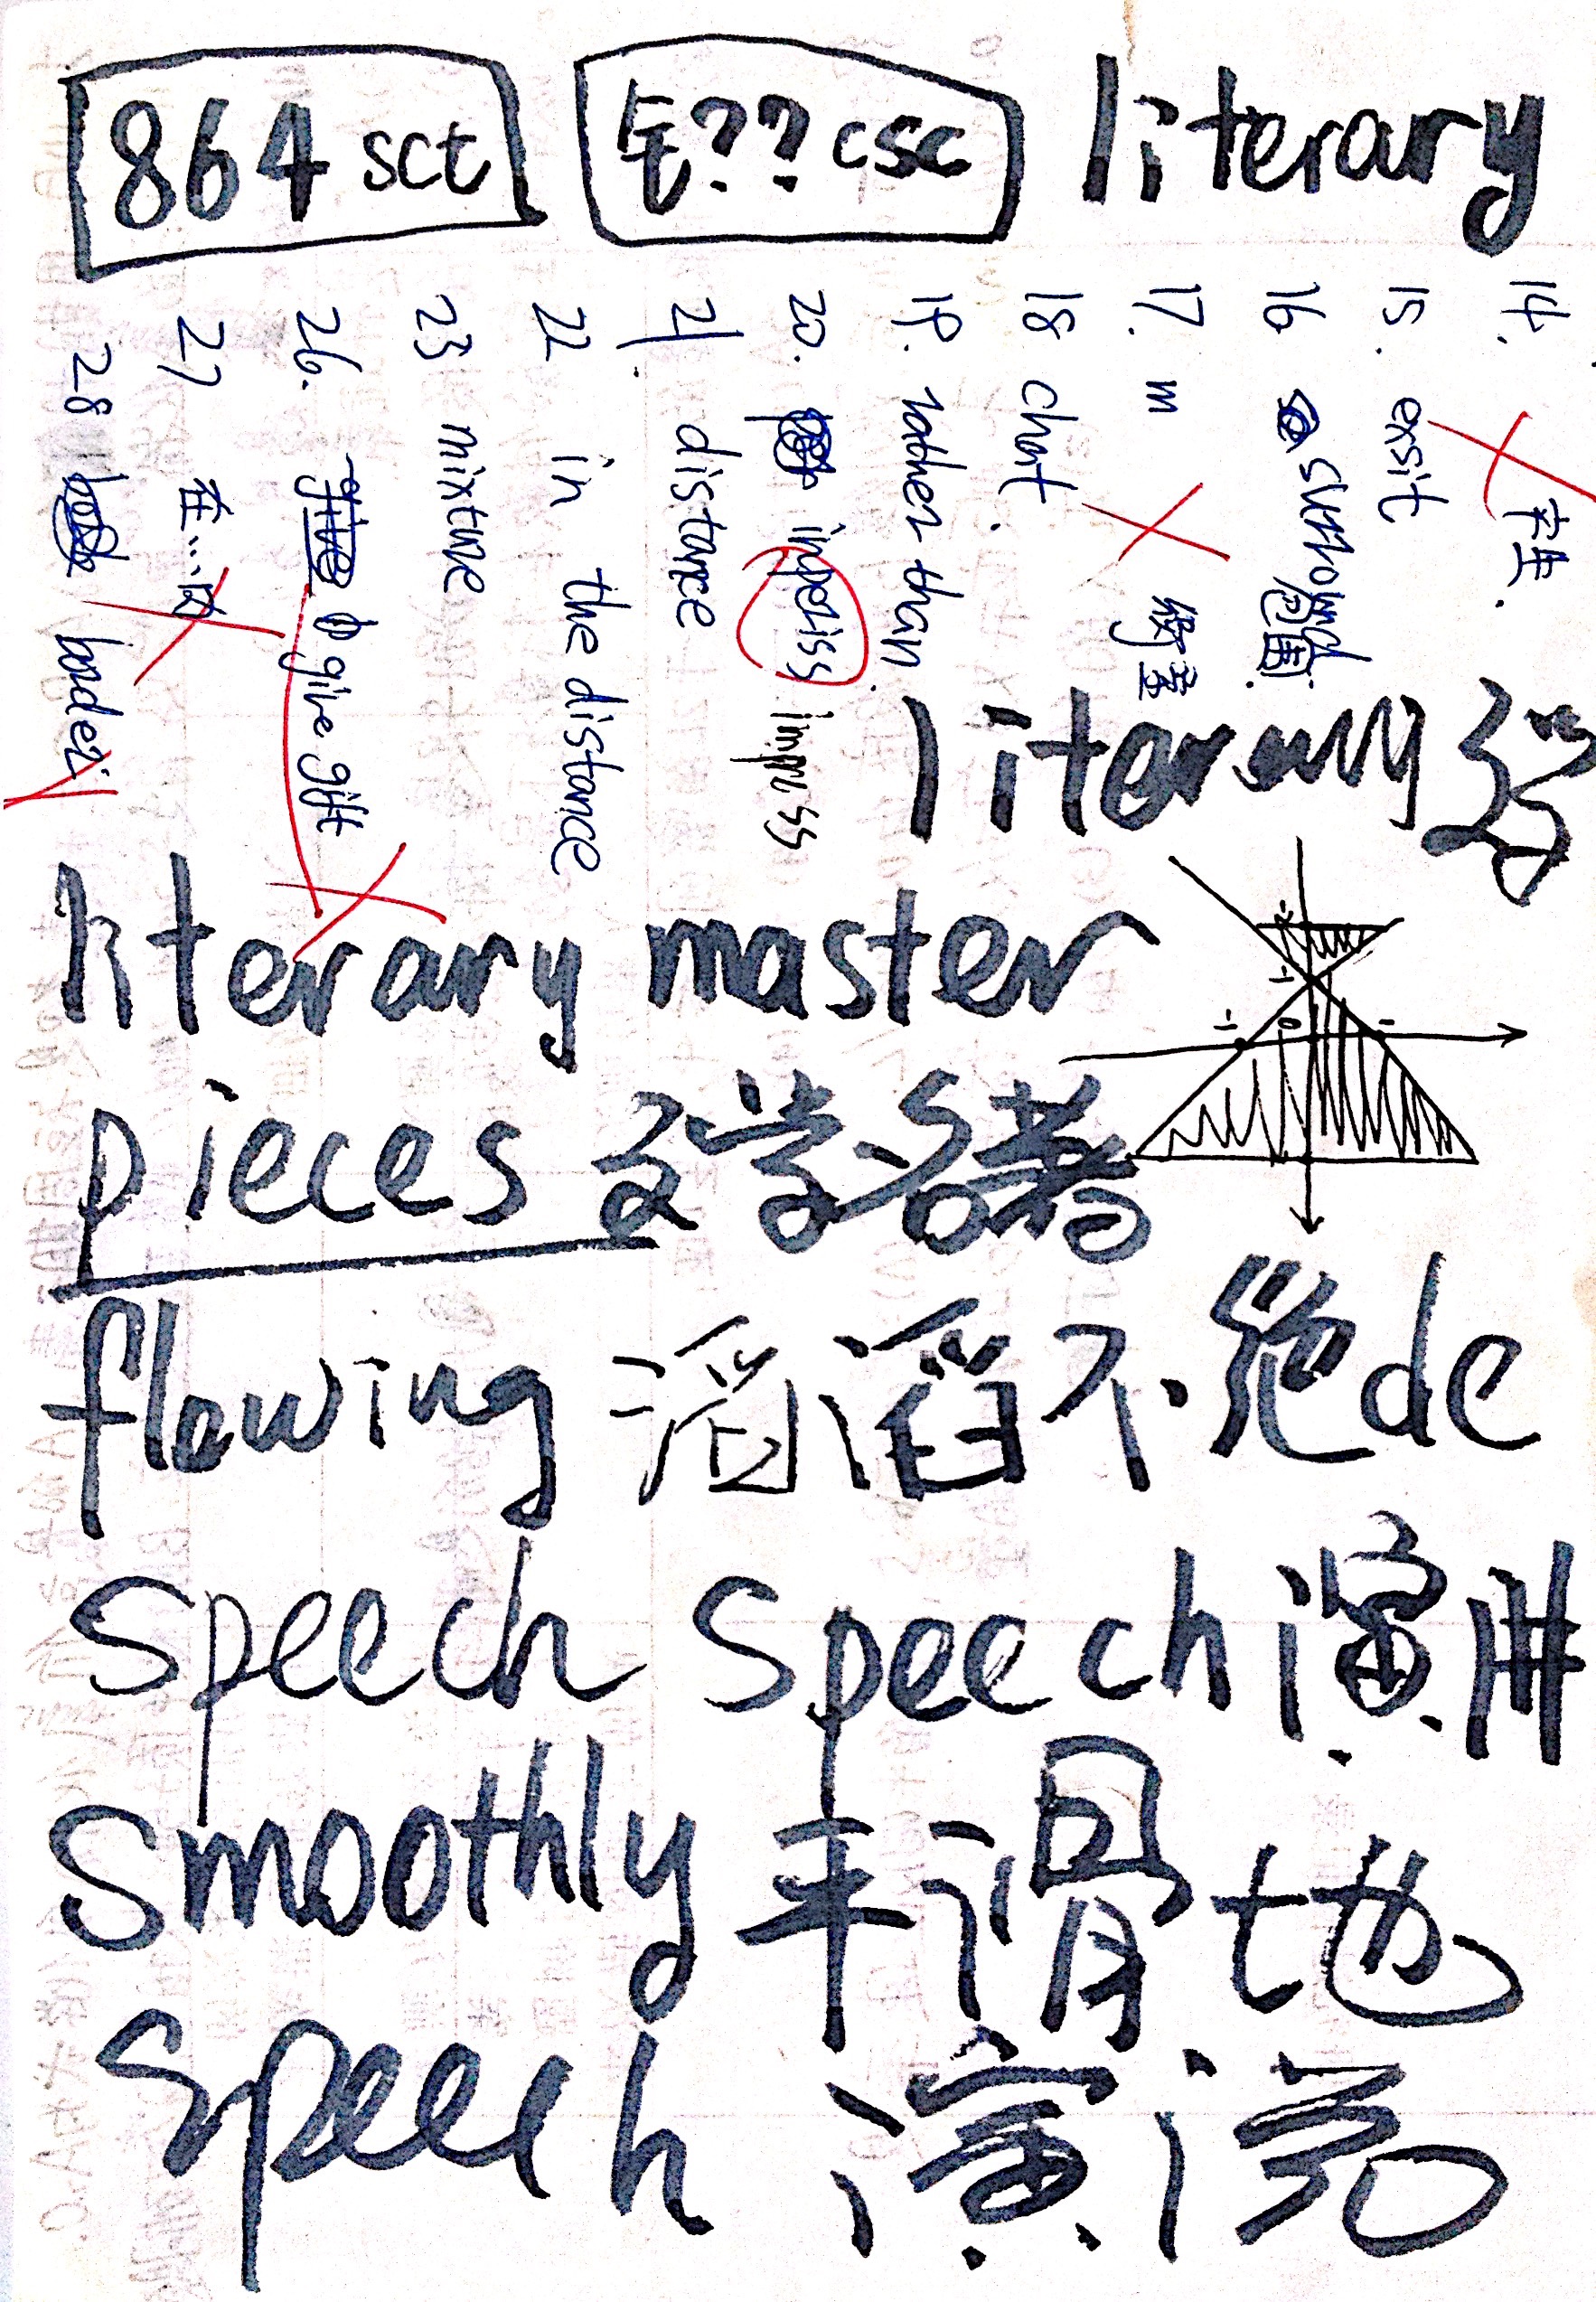 864 sct
??csc
literary
14.
15. exsit 存在.
16 surround 包围.
17. m
18 chat.
19. rather than
20. impeiss impress
21 distance
22. in the distance
23 mixture
26. give gift
27 在...内
28 borderi
literary
literary master
pieces 文学名著
flowing 滔滔不绝de
speech speech 演讲
smoothly 平滑地
speech 演说